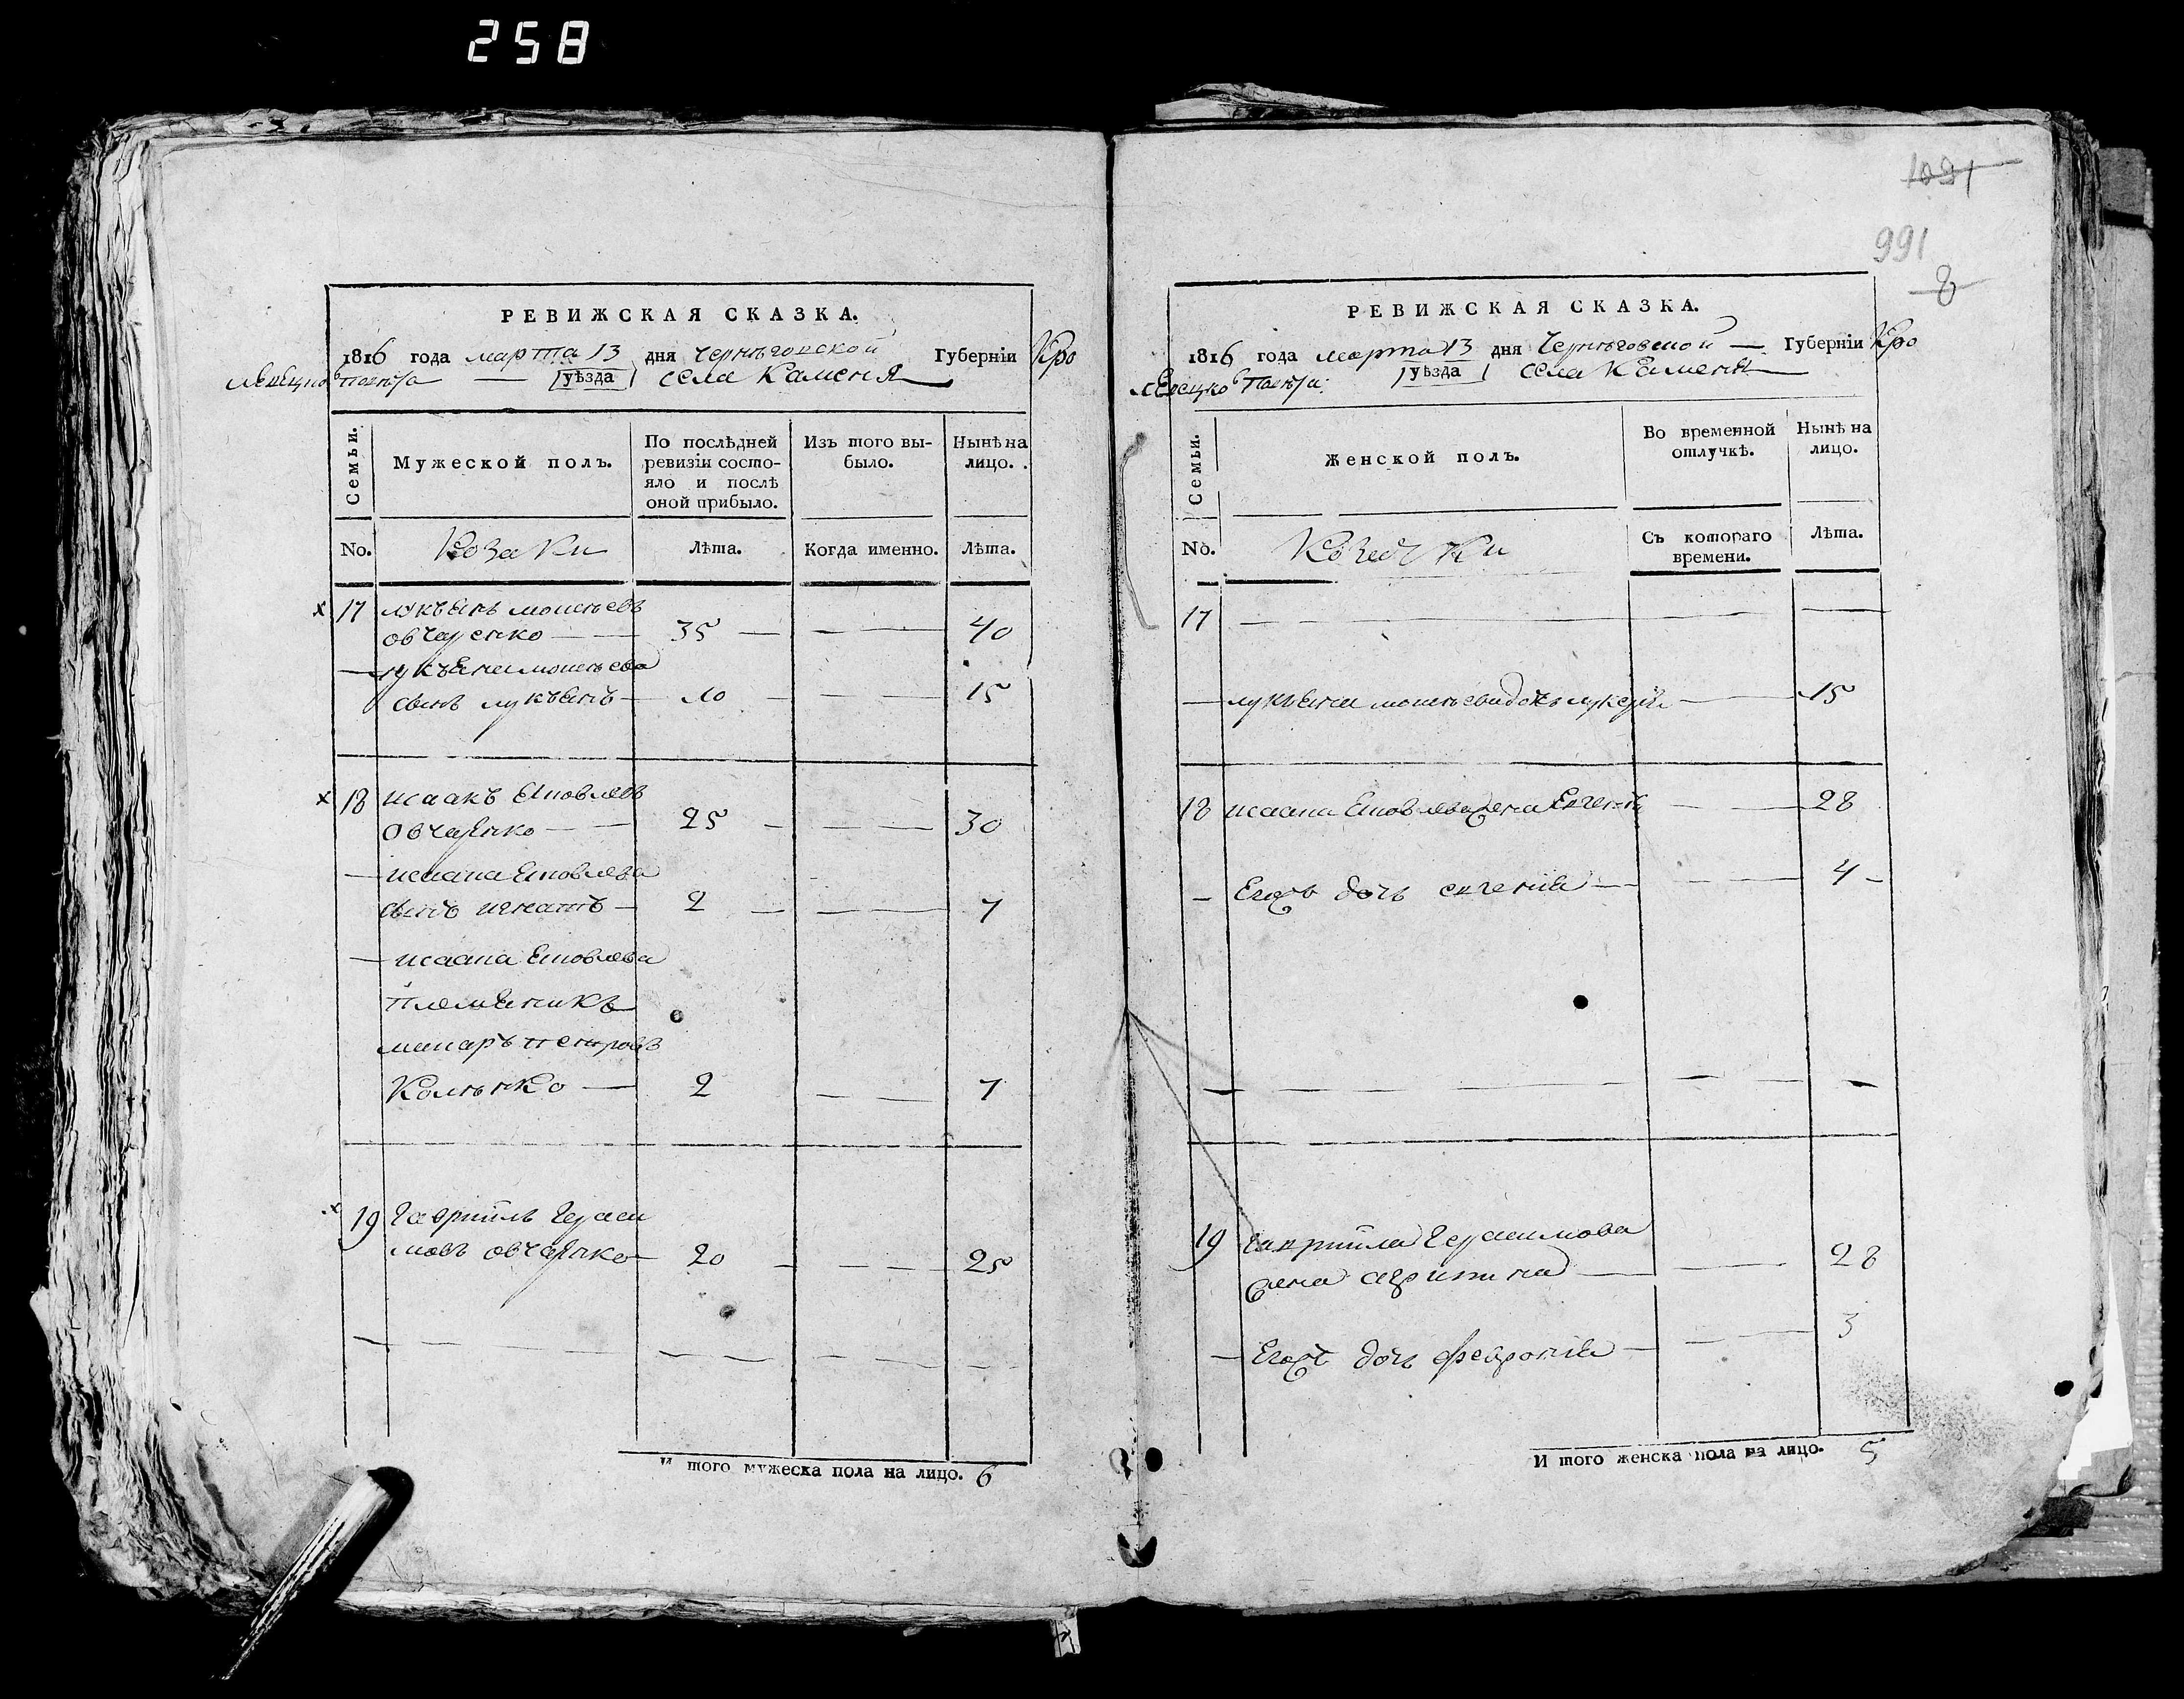 258
1091
991
8
РЕВИЖСКАЯ СКАЗКА.
1816 года марта 13 дня Черниговской Губерніи Кро
левецкого повѣта — уѣзда села Каменя
Семьи.
Мужеской полъ.
По послѣдней ревизіи состо-
яло и послѣ оной прибыло.
Изъ того вы-
было.
Нынѣ на
лицо.
No.
Козаки
Лѣта.
Когда именно.
Лѣта.
17 лукъянъ
овчаренко — 35 — — 40
— лукъяна
сынъ лукъянъ — 10 — — 15
18 исаакъ яковлевъ
овчаренко — 25 — — 30
— исаака яковлева
сынъ игнатъ — 2 — — 7
— исаака яковлева
племяникъ
макаръ петровъ
— 2 — — 7
19 гавріилъ гераси
мовъ овчаренко — 20 — — 25
И того мужеска пола на лицо. 6
РЕВИЖСКАЯ СКАЗКА.
1816 года марта 13 дня Черниговской — Губерніи Кро
левецкого повѣта уѣзда села Каменя
Семьи.
Женской полъ.
Во временной
отлучкѣ.
Нынѣ на
лицо.
No.
Козачки
Съ котораго
времени.
Лѣта.
17 — — —
— лукъяна дочь лукерія — 15
18 исаака яковлева жена Евгенія — 28
— Егожъ дочь евгенія — 4
19 гавріила герасимова
жена агрипина — 28
— Егожъ дочь февронія — 3
И того женска пола на лицо. 5